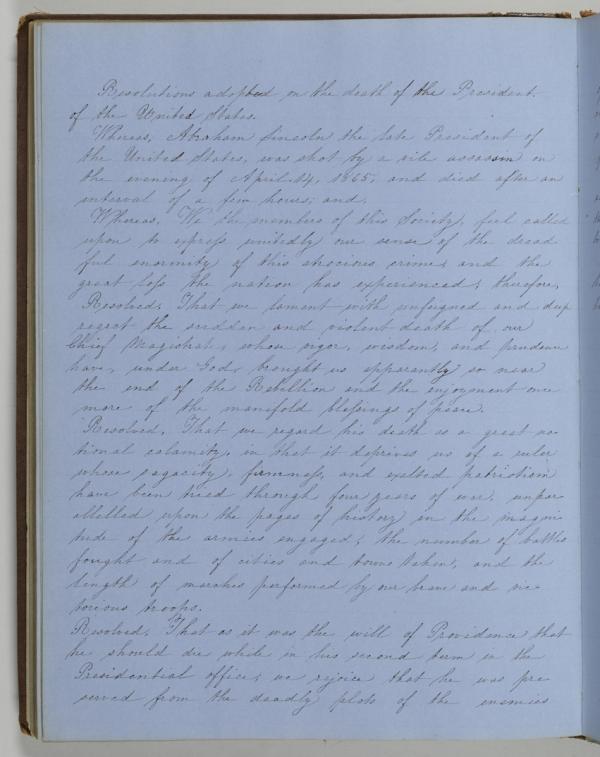 Resolutions adopted on the death of the President
of the United States.
Whereas, Abraham Lincoln the late President of
the United States, was shot by a vile assassin on
the evening of April 14, 1865, and died after an
interval of a few hours; and
Whereas, We the members of this Society, feel called
upon to express unitedly our sense of the dread
ful enormity of this atrocious crime, and the
great loss the nation has experienced; therefore,
Resolved, That we lament with unfeigned and deep
regret the sudden and violent death of our
Chief Magistrate, whose vigor, wisdom, and prudence
have, under God, brought us apparantly so near
the end of the Rebellion and the enjoyment once
more of the manifold blessings of peace.
Resolved, That we regard his death as a great na
tional calamity, in that it deprives us of a ruler
whose sagacity, firmness, and exalted patriotism
have been tried through four years of war, unpar
allelled upon the pages of history in the magni
tude of the armies engaged; the number of battles
fought and of cities and towns taken, and the
length of marches performed by our brave and vic
torious troops.
Resolved, That as it was the will of Providence that
he should die while in his second term in the
Presidential office, we rejoice that he was pre
served from the deadly plots of the enemies